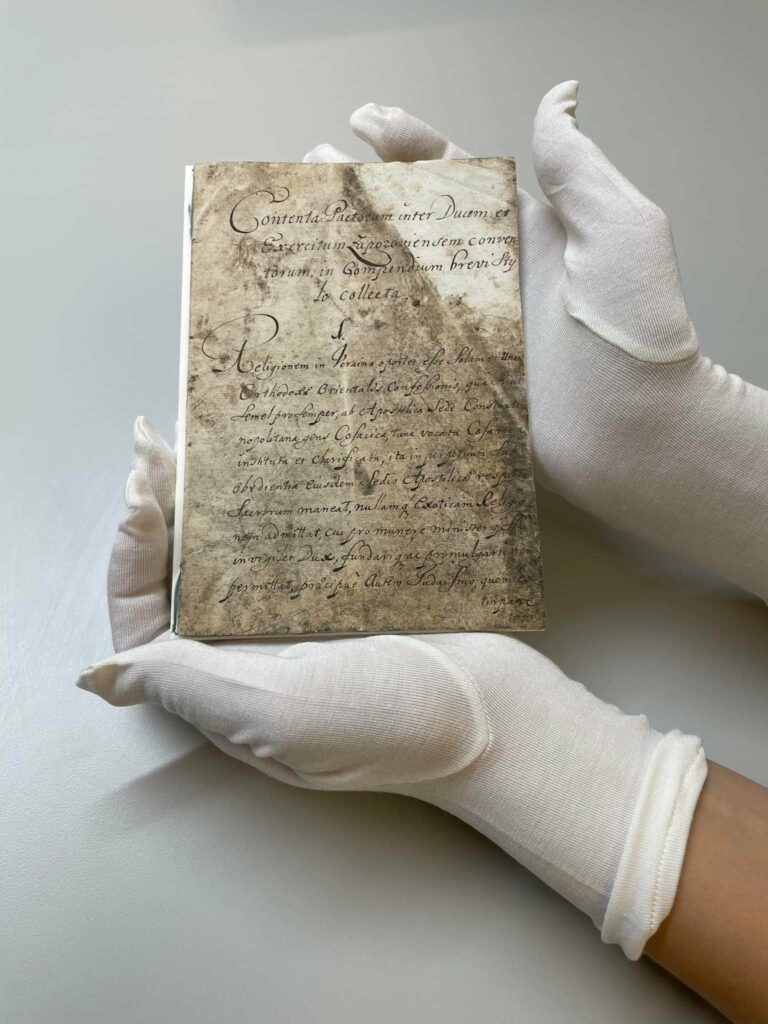 Contenta Pactorum inter Ducem et
Exercitum Zaporoviensem conven
torum, in Compendium brevi Sty
lo collecta
1.
Religionem in Ucraina oportet esse Solam et
Orthodoxæ Orientalis Confessionis, qua
semel pro semper, ab Apostolica Sede Constanti
nopolitana, gens Cosacica, tunc vocata
instituta et clarificata, ita in perpetuum sub
obedientia Eiusdem Sedis Apostolicæ
Sacrorum maneat, nullamq Exoticam Religio
nem admittat, cui pro munere ministerij
invigilet Dux, fundariq ac promulgari
permittat, præcipuè Autem Judaismo, quem